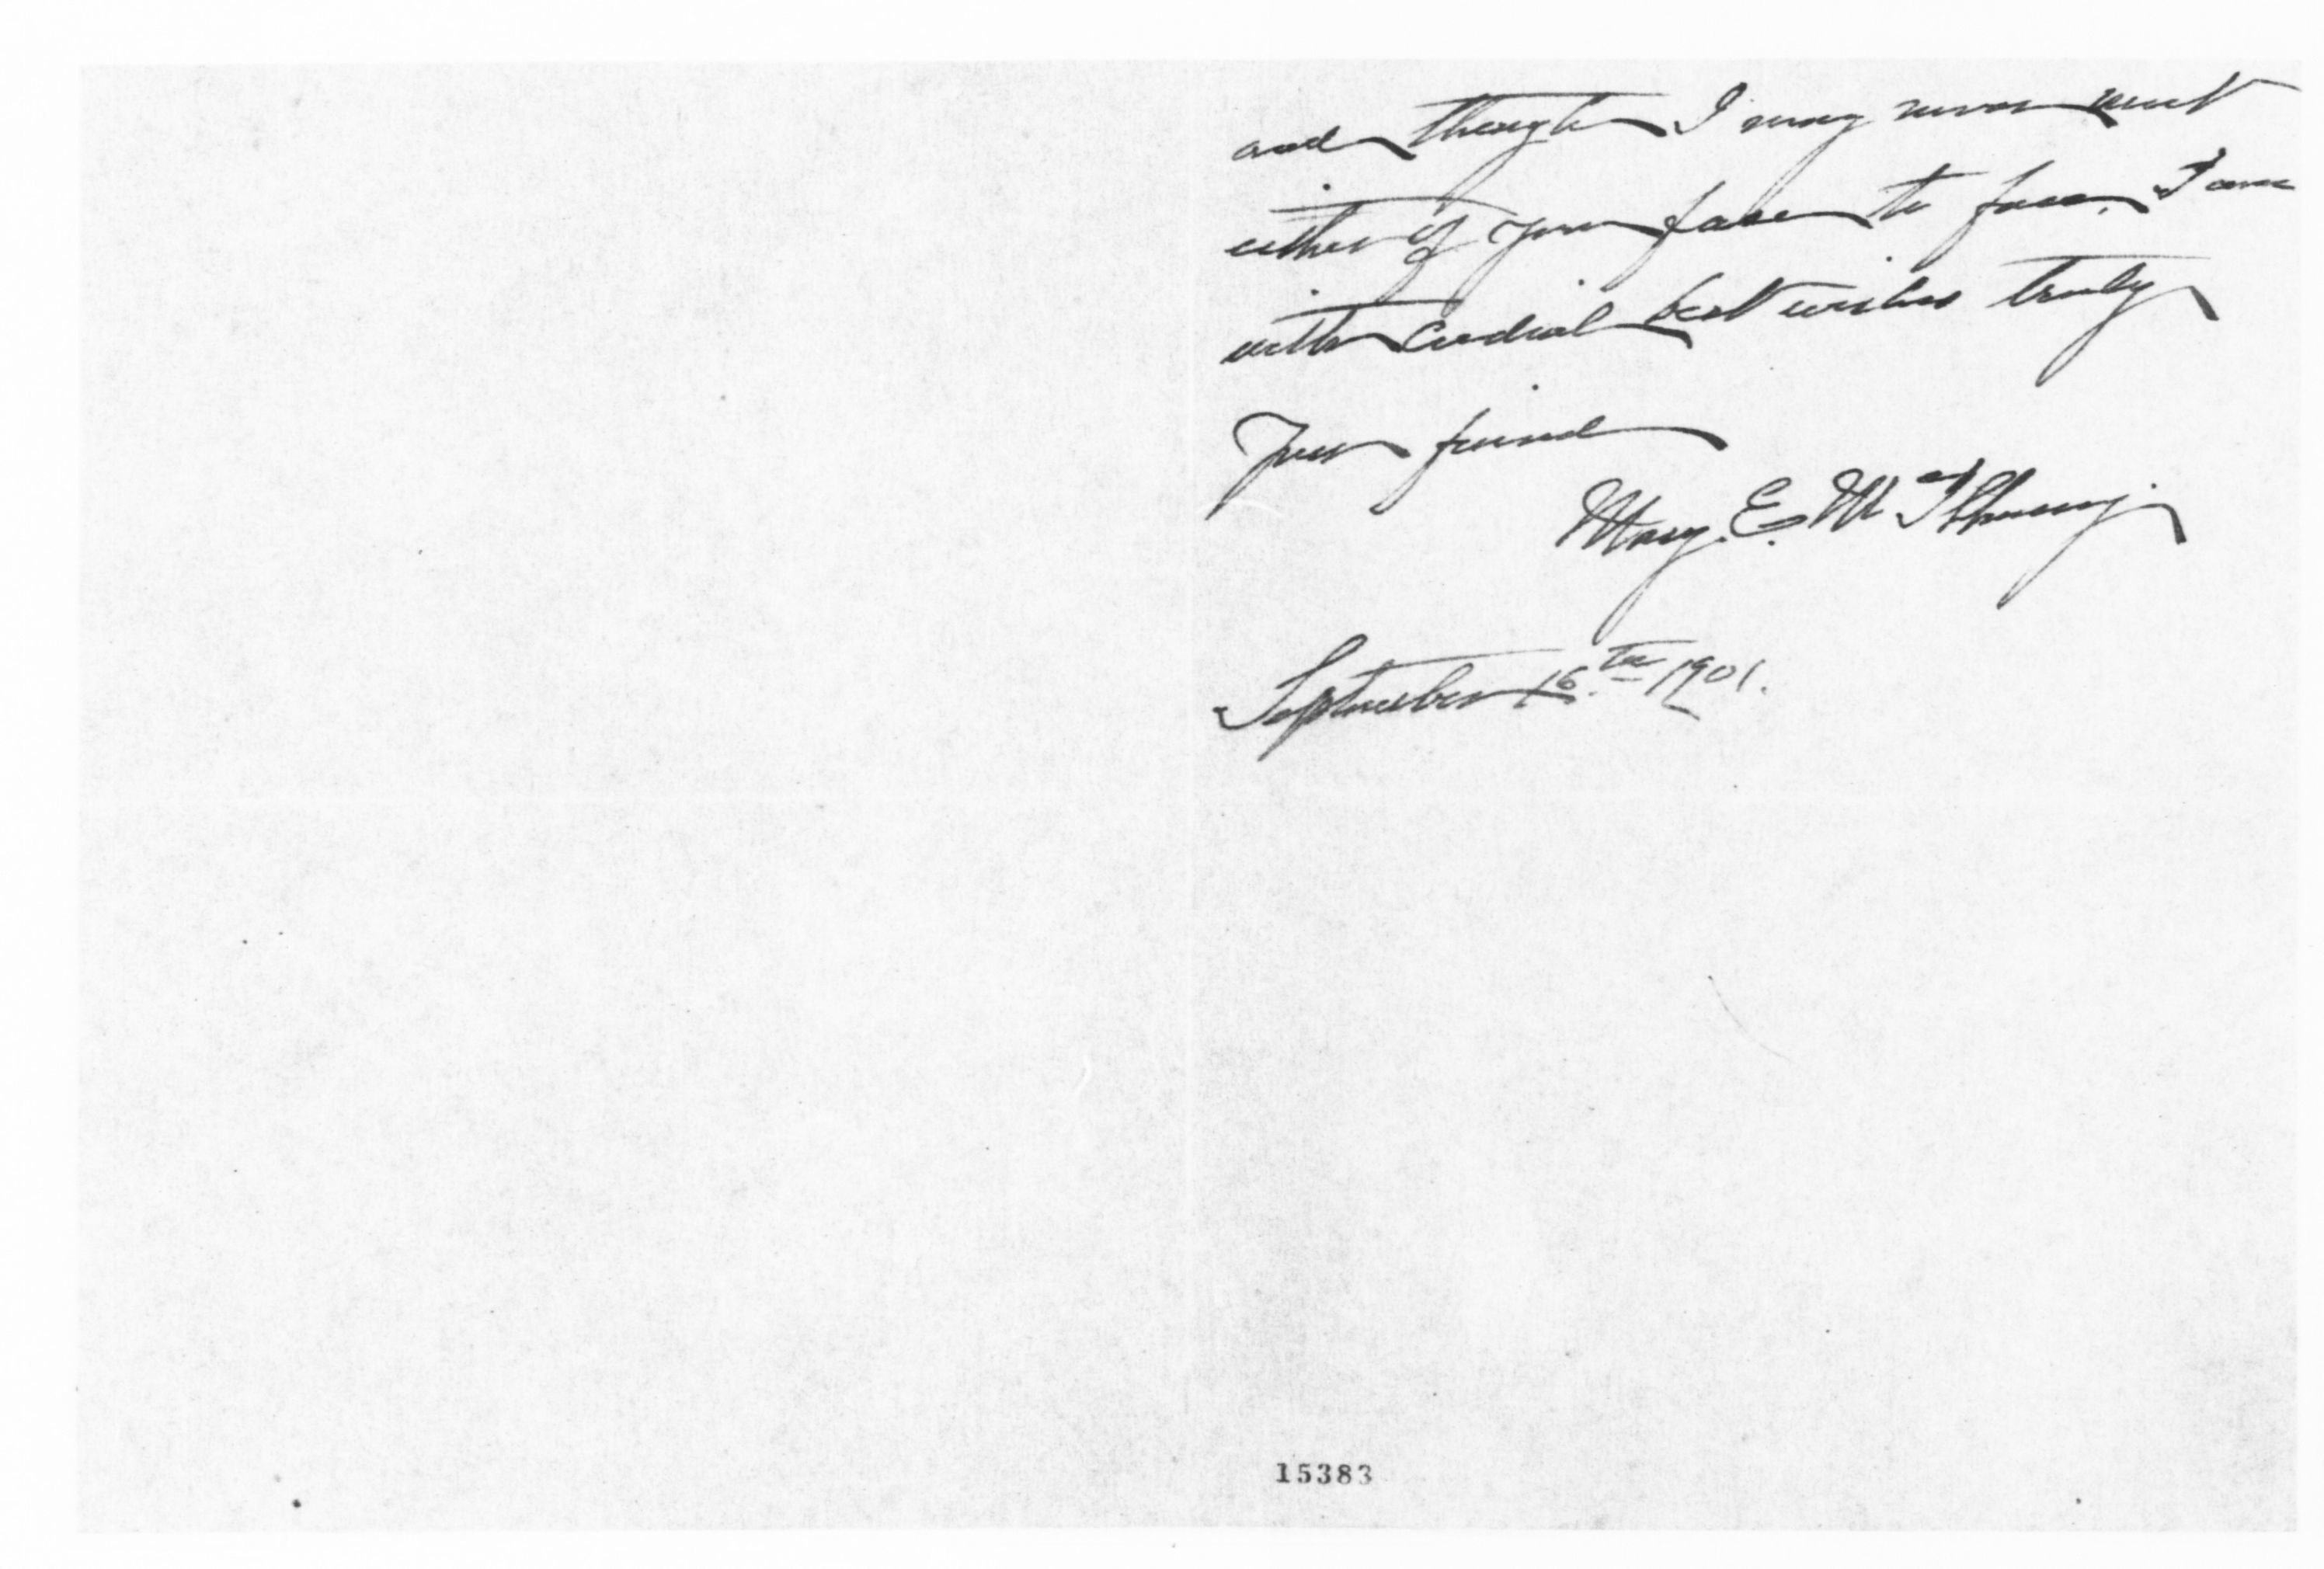 and though I may never meet
either of you face to face, I am
with cordial best wishes truly
Your friend
Mary. E. Mc
September 16.th 1901.
15383